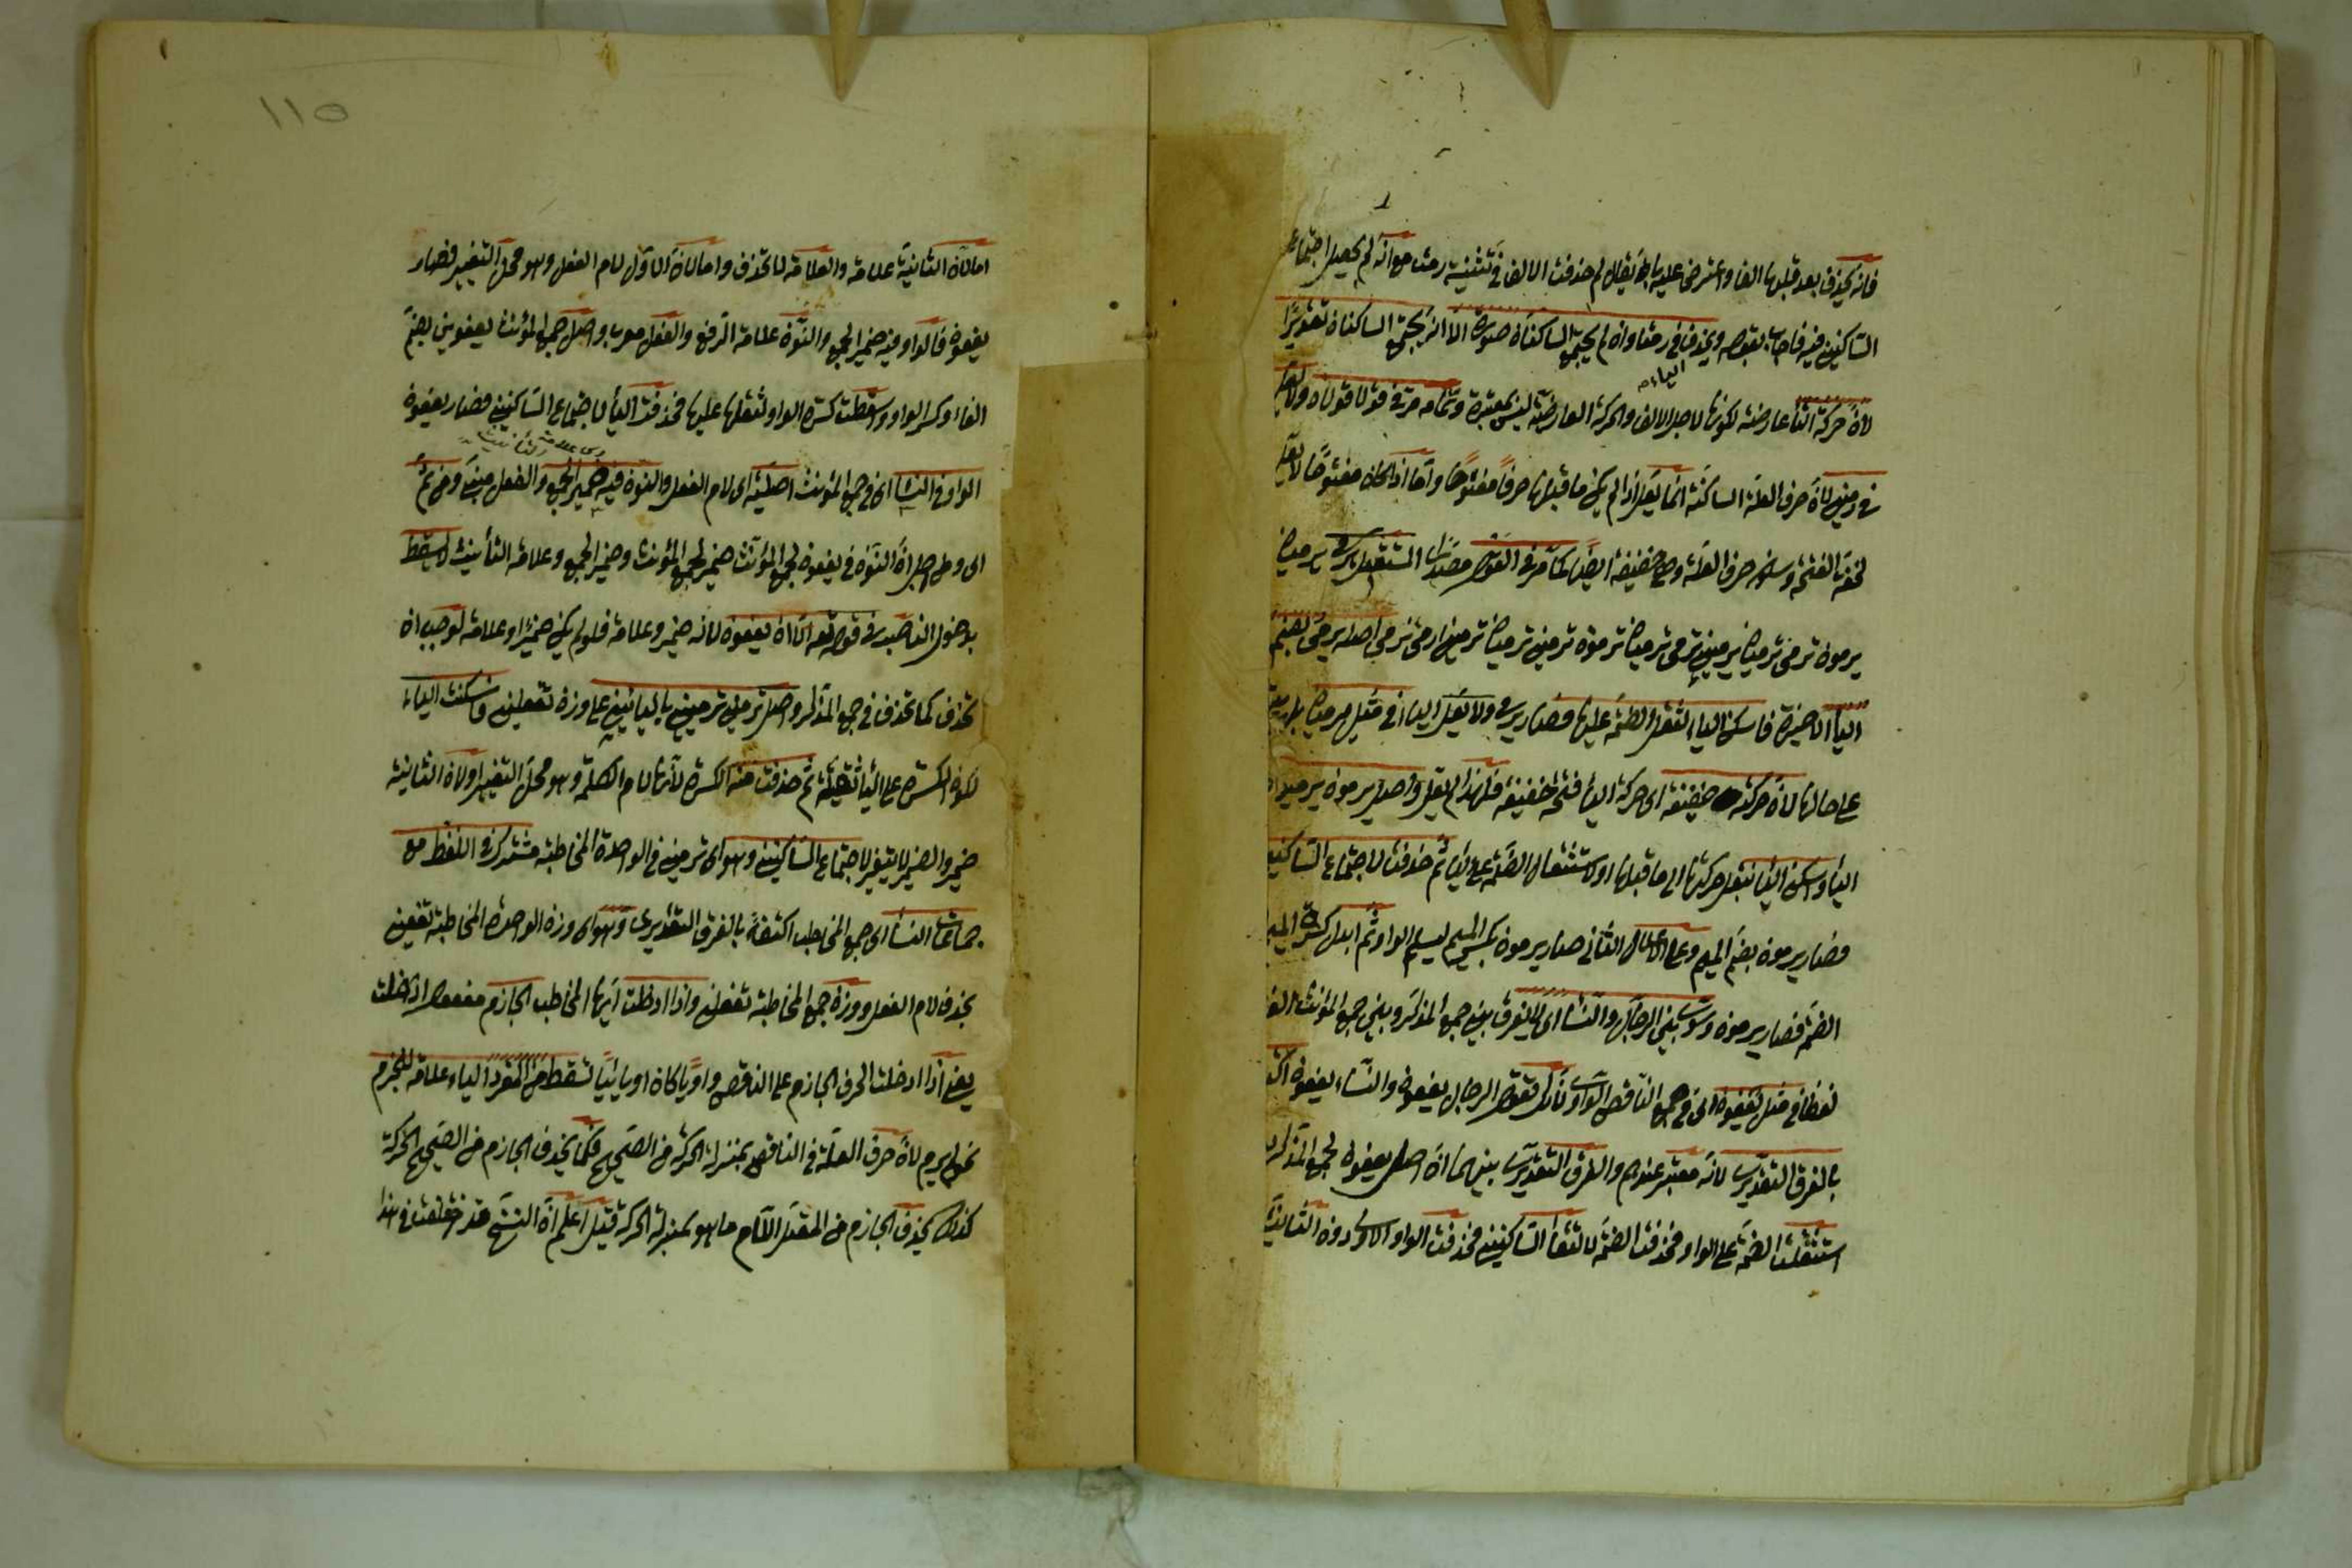 فانه يحذف بعد قلبها الفا واعترض عليه بان يقال لم حذفت الالف في تثنية رمت مع انه لم يحصل اجتماع
الساكنين فيه فاجاب بقوله ويحذف في رمتا وان لم يجتمع الساكنان صورة الا انه يجتمع الساكنان تقديرا
لان حركة التاء عارضة لكونها لاجل الالف والحركة العارضة ليس بمعتبرة وتمامه مر في قولا قولان ولا يعل
الياء
في رمين لان حرف العلة الساكنة انما يعل اذا لم يكن ما قبلها حرفا مفتوحا واما اذا كان مفتوحا لا يعل
لخفة الفتحة وسكون حرف العلة وهي خفيفة ايضا كما مر في القول المستقبل يرمي يرميان
يرمون ترمي ترميان يرمين ترمي ترميان ترمون ترمين ترميان ترمين ارمي نرمي اصله يرمي بضم
الياء الاخيرة فاسكن الياء لثقل الضمة عليها فصار يرمي ولا يعل الياء في مثل يرميان بل يبقى
على حالها لان حركته خفيفة اى حركة الياء فتحة خفيفة فلهذا لم يعل واصل يرمون يرميون
الياء واسكن الياء بنقل حركتها الى ما قبلها او لاستثقال الضمة على الياء ثم حذفت لاجتماع الساكنين
فصار يرمون بضم الميم وعلى الاعلال الثاني صار يرمون بكسر الميم ليسلم الواو ثم ابدل كسرة الميم
الضم فصار يرمون وسوى بين الرجال والنساء اى لا يفرق بين جمع المذكر وبين جمع المؤنث الغائبة
لفظا في مثل يعفون اى في جمع الناقص الواوي تقول الرجال يعفون والنساء يعفون اكتفاء
بالفرق التقديري لانه معتبر عندهم والفرق التقديري بينهما ان اصل يعفون لجمع المذكر
استثقلت الضمة على الواو فحذفت الضمة لالتقاء الساكنين فحذفت الواو الاولى دون الثانية
١١٥
اما لان الثانية علامة والعلامة لا تحذف واما لان الاول لام الفعل وهو محل التغيير فصار
يعفون فالواو فيه ضمير الجمع والنون علامة الرفع والفعل معرب واصل جمع المؤنث يعفوين بضم
الفاء وكسر الواو وسقطت كسرة الواو لثقلها عليها فحذفت الياء لاجتماع الساكنين فصار يعفون
وهي علامة التأنيث
الواو في النساء اى في جمع المؤنث اصلية اى لام الفعل والنون فيه ضمير الجمع والفعل مبني ومن ثم
اى ومن اجل ان النون في يعفون لجمع المؤنث ضمير لجمع المؤنث وضمير الجمع وعلامة التأنيث لا يسقط
بدخول الناصب في قوله تعالى الا ان يعفون لانه ضمير وعلامة فلو لم يكن ضميرا وعلامة لوجب ان
تحذف كما تحذف في جمع المذكر واصل ترمين ترميين بالياءين على وزن تفعلين فاسكنت الياء
لكون الكسرة على الياء ثقيلة ثم حذفت منه الكسرة لانها لام الكلمة وهو محل التغيير او لان الثانية
ضمير والضمير لا يتغير لاجتماع الساكنين وهو اى ترمين في الواحدة المخاطبة مشترك في اللفظ مع
جماعة النساء اى جمع المخاطب اكتفاء بالفرق التقديري وهو اى وزن الواحدة المخاطبة تفعين
بحذف لام الفعل ووزن جمع المخاطبة تفعلن واذا ادخلت ايها المخاطب الجازم مفعول ادخلت
يعني اذا ادخلت الحرف الجازم على الناقص واويا كان او يائيا تسقط من المفرد الياء علامة للجزم
نحو لم يرم لان حرف العلة في الناقص بمنزلة الحركة من الصحيح فكما يحذف الجازم من الصحيح الحركة
كذلك يحذف الجازم من المعتل اللام ما هو بمنزلة الحركة قيل اعلم ان النسخ قد اختلفت في هذا